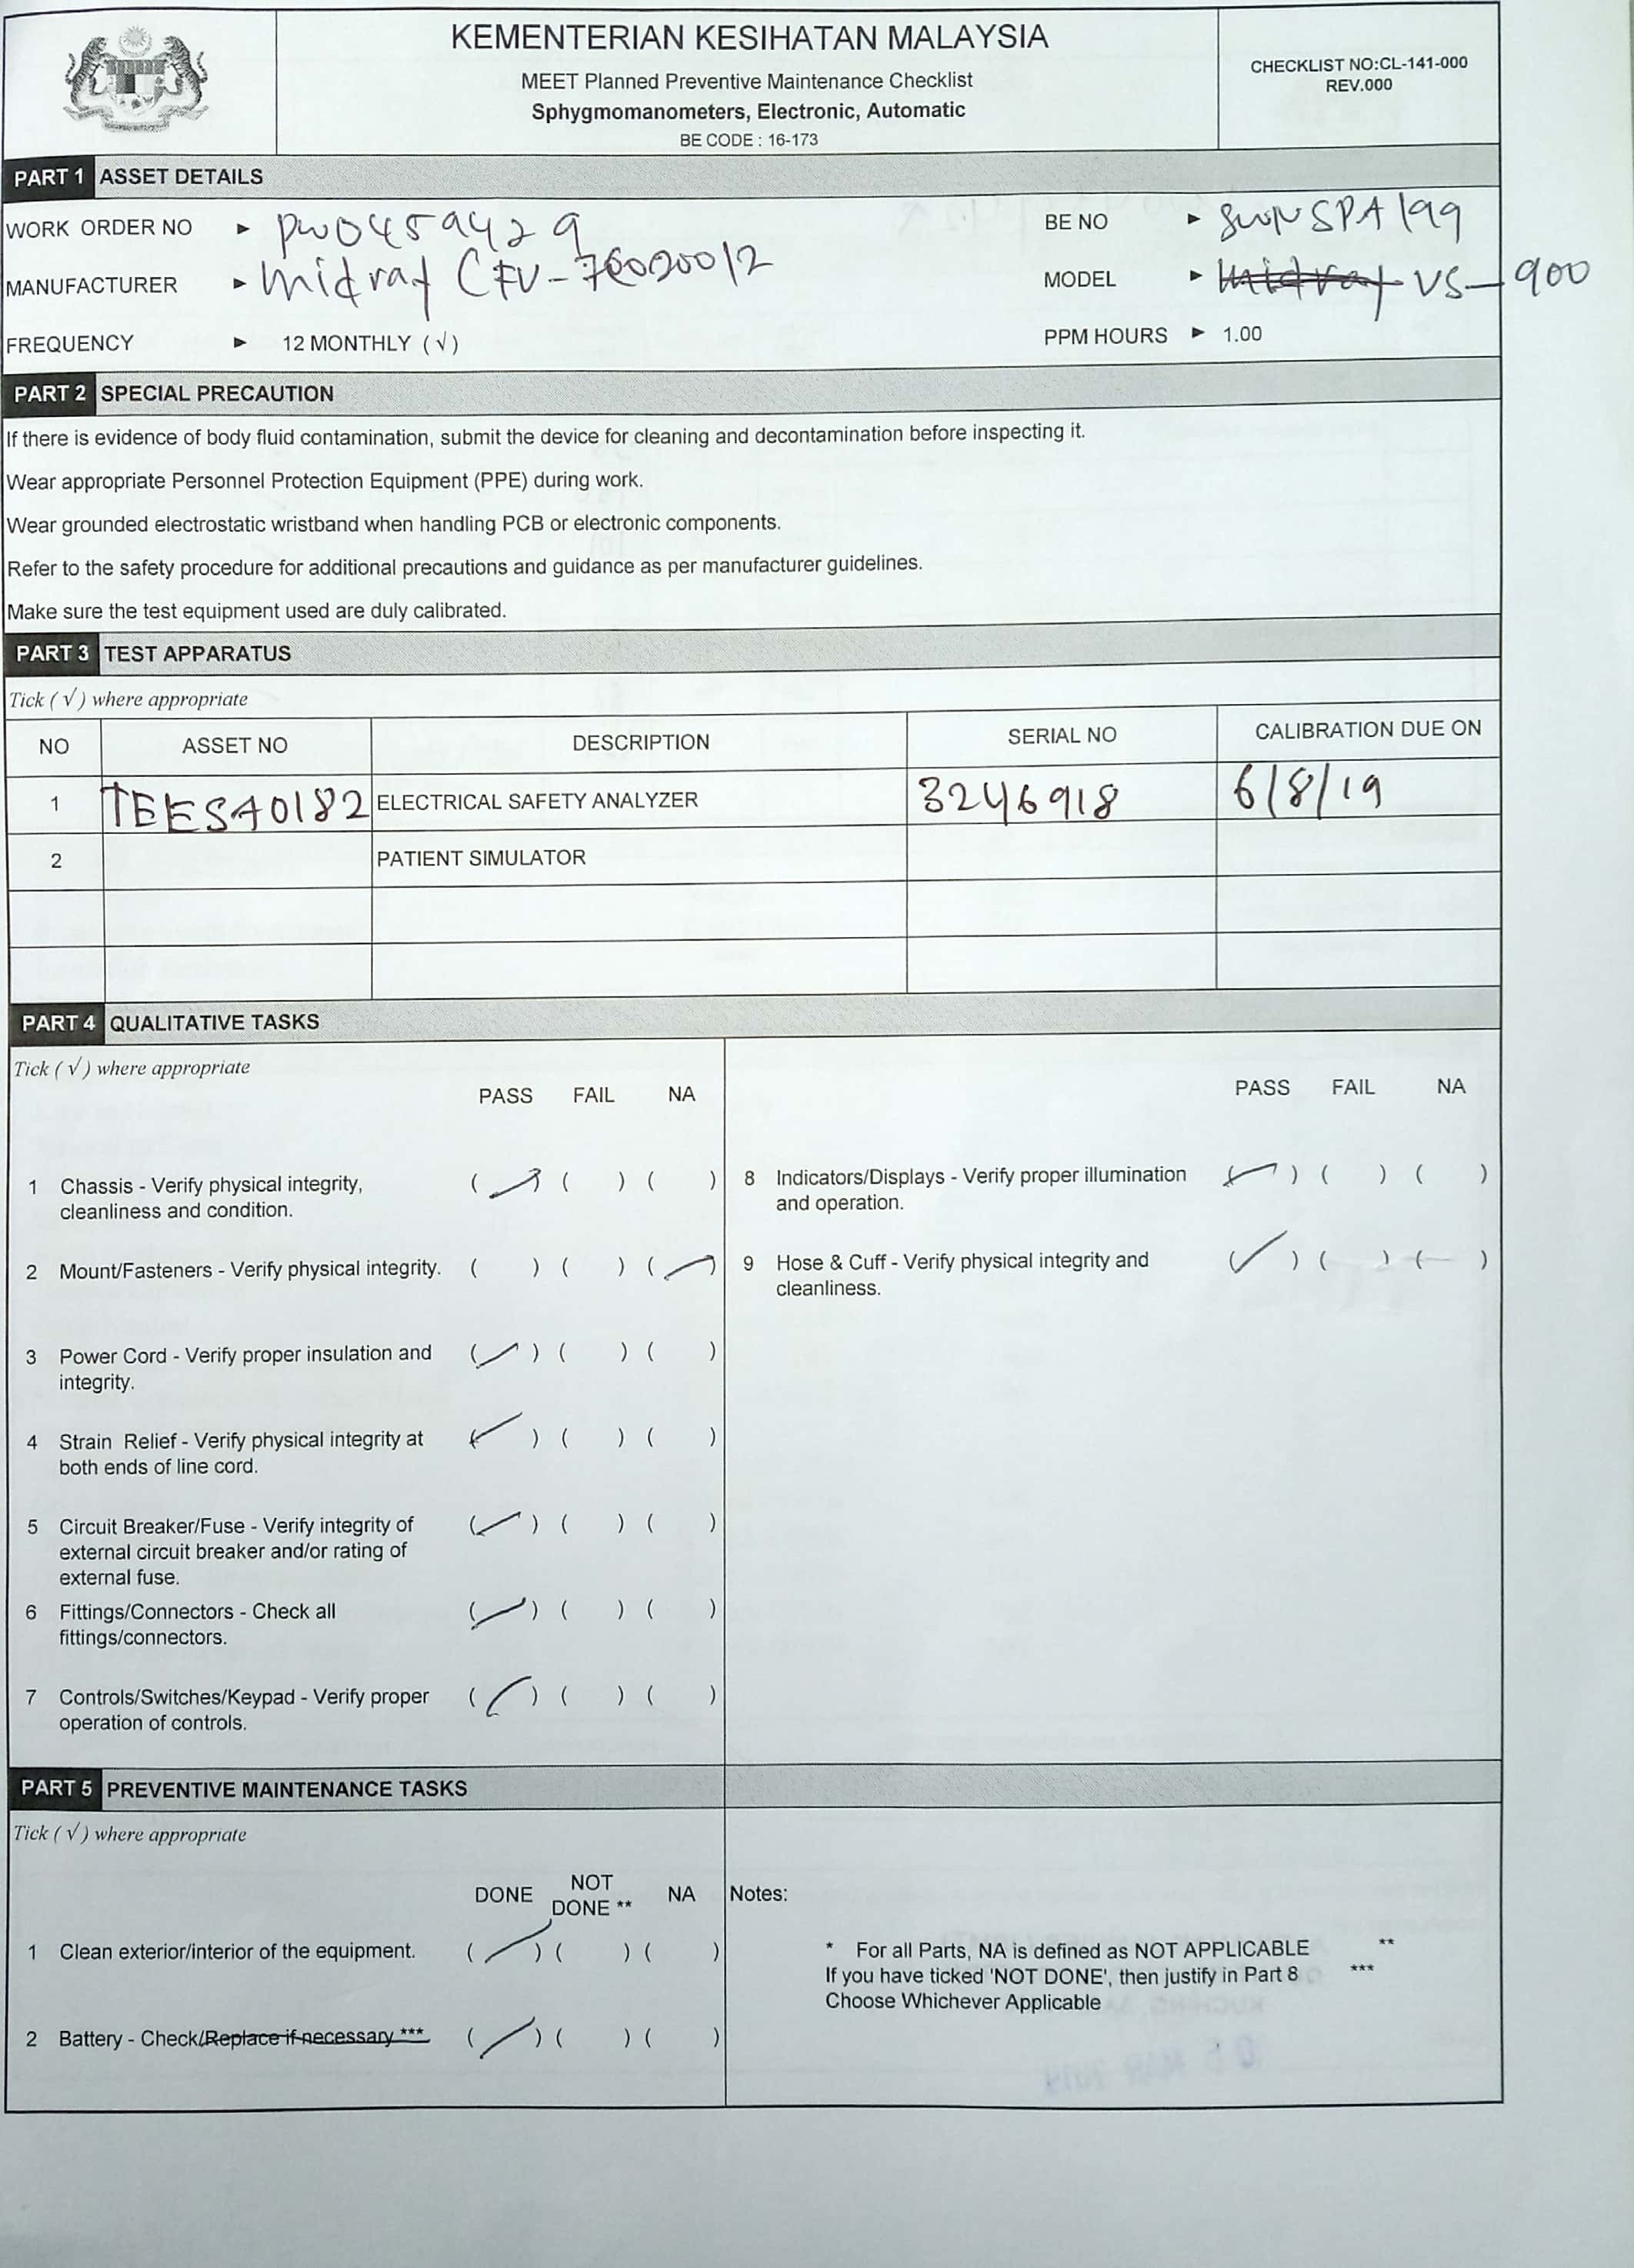 KEMENTERIAN KESIHATAN MALAYSIA
MEET Planned Preventive Maintenance Checklist
Sphygmomanometers, Electronic, Automatic
BE CODE : 16-173
CHECKLIST NO:CL-141-000
REV.000
PART 1 ASSET DETAILS
WORK ORDER NO ► PW0459429 BE NO ► SWNSPA199
MANUFACTURER ► MODEL ► VS-900
FREQUENCY ► 12 MONTHLY (√) PPM HOURS ► 1.00
PART 2 SPECIAL PRECAUTION
If there is evidence of body fluid contamination, submit the device for cleaning and decontamination before inspecting it.
Wear appropriate Personnel Protection Equipment (PPE) during work.
Wear grounded electrostatic wristband when handling PCB or electronic components.
Refer to the safety procedure for additional precautions and guidance as per manufacturer guidelines.
Make sure the test equipment used are duly calibrated.
PART 3 TEST APPARATUS
Tick (√) where appropriate
NO ASSET NO DESCRIPTION SERIAL NO CALIBRATION DUE ON
1 TEESA0182 ELECTRICAL SAFETY ANALYZER 3246918 6/8/19
2 PATIENT SIMULATOR
PART 4 QUALITATIVE TASKS
Tick (√) where appropriate
PASS FAIL NA
1 Chassis - Verify physical integrity, (✓) ( ) ( )
cleanliness and condition.
2 Mount/Fasteners - Verify physical integrity. ( ) ( ) (✓)
3 Power Cord - Verify proper insulation and (✓) ( ) ( )
integrity.
4 Strain Relief - Verify physical integrity at (✓) ( ) ( )
both ends of line cord.
5 Circuit Breaker/Fuse - Verify integrity of (✓) ( ) ( )
external circuit breaker and/or rating of
external fuse.
6 Fittings/Connectors - Check all (✓) ( ) ( )
fittings/connectors.
7 Controls/Switches/Keypad - Verify proper (✓) ( ) ( )
operation of controls.
PASS FAIL NA
8 Indicators/Displays - Verify proper illumination (✓) ( ) ( )
and operation.
9 Hose & Cuff - Verify physical integrity and (✓) ( ) ( )
cleanliness.
PART 5 PREVENTIVE MAINTENANCE TASKS
Tick (√) where appropriate
DONE NOT DONE ** NA
1 Clean exterior/interior of the equipment. (✓) ( ) ( )
2 Battery - Check/Replace if necessary *** (✓) ( ) ( )
Notes:
* For all Parts, NA is defined as NOT APPLICABLE **
If you have ticked 'NOT DONE', then justify in Part 8 ***
Choose Whichever Applicable